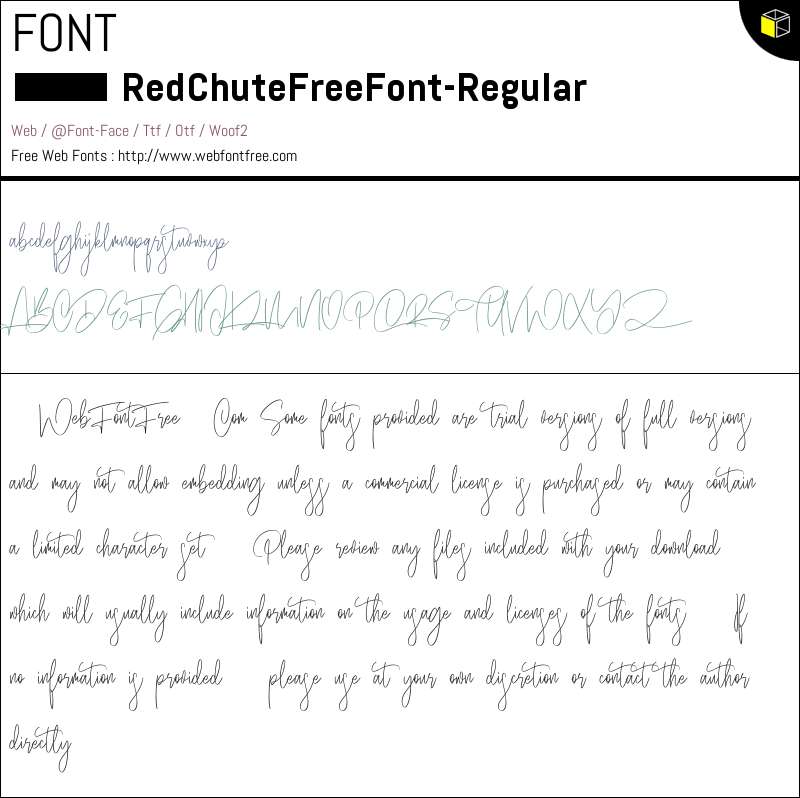 FONT
RedChuteFreeFont-Regular
Web / @Font-Face / Ttf / Otf / Woof2
Free Web Fonts : http://www.webfontfree.com
abcdefghijklmnopqrstuvwxyz
ABCDEFGHIJKLMNOPQRSTUVWXYZ
WebFontFree Com Some fonts provided are trial versions of full versions
and may not allow embedding unless a commercial license is purchased or may contain
a limited character set Please review any files included with your download
which will usually include information on the usage and licenses of the fonts If
no information is provided please use at your own discretion or contact the author
directly